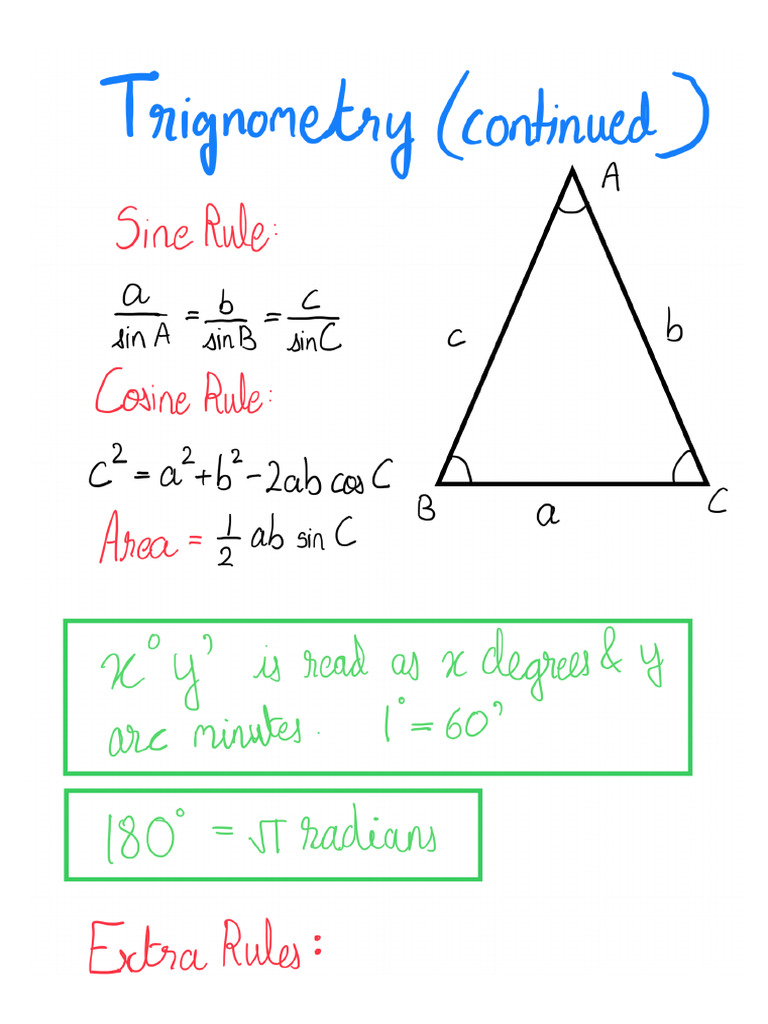 Trignometry (continued)
Sine Rule:
a/sin A = b/sin B = c/sin C
Cosine Rule:
c² = a² + b² - 2ab cos C
Area = 1/2 ab sin C
A
c
b
B
a
C
x° y’ is read as x degrees & y
arc minutes. 1° = 60’
180° = π radians
Extra Rules: